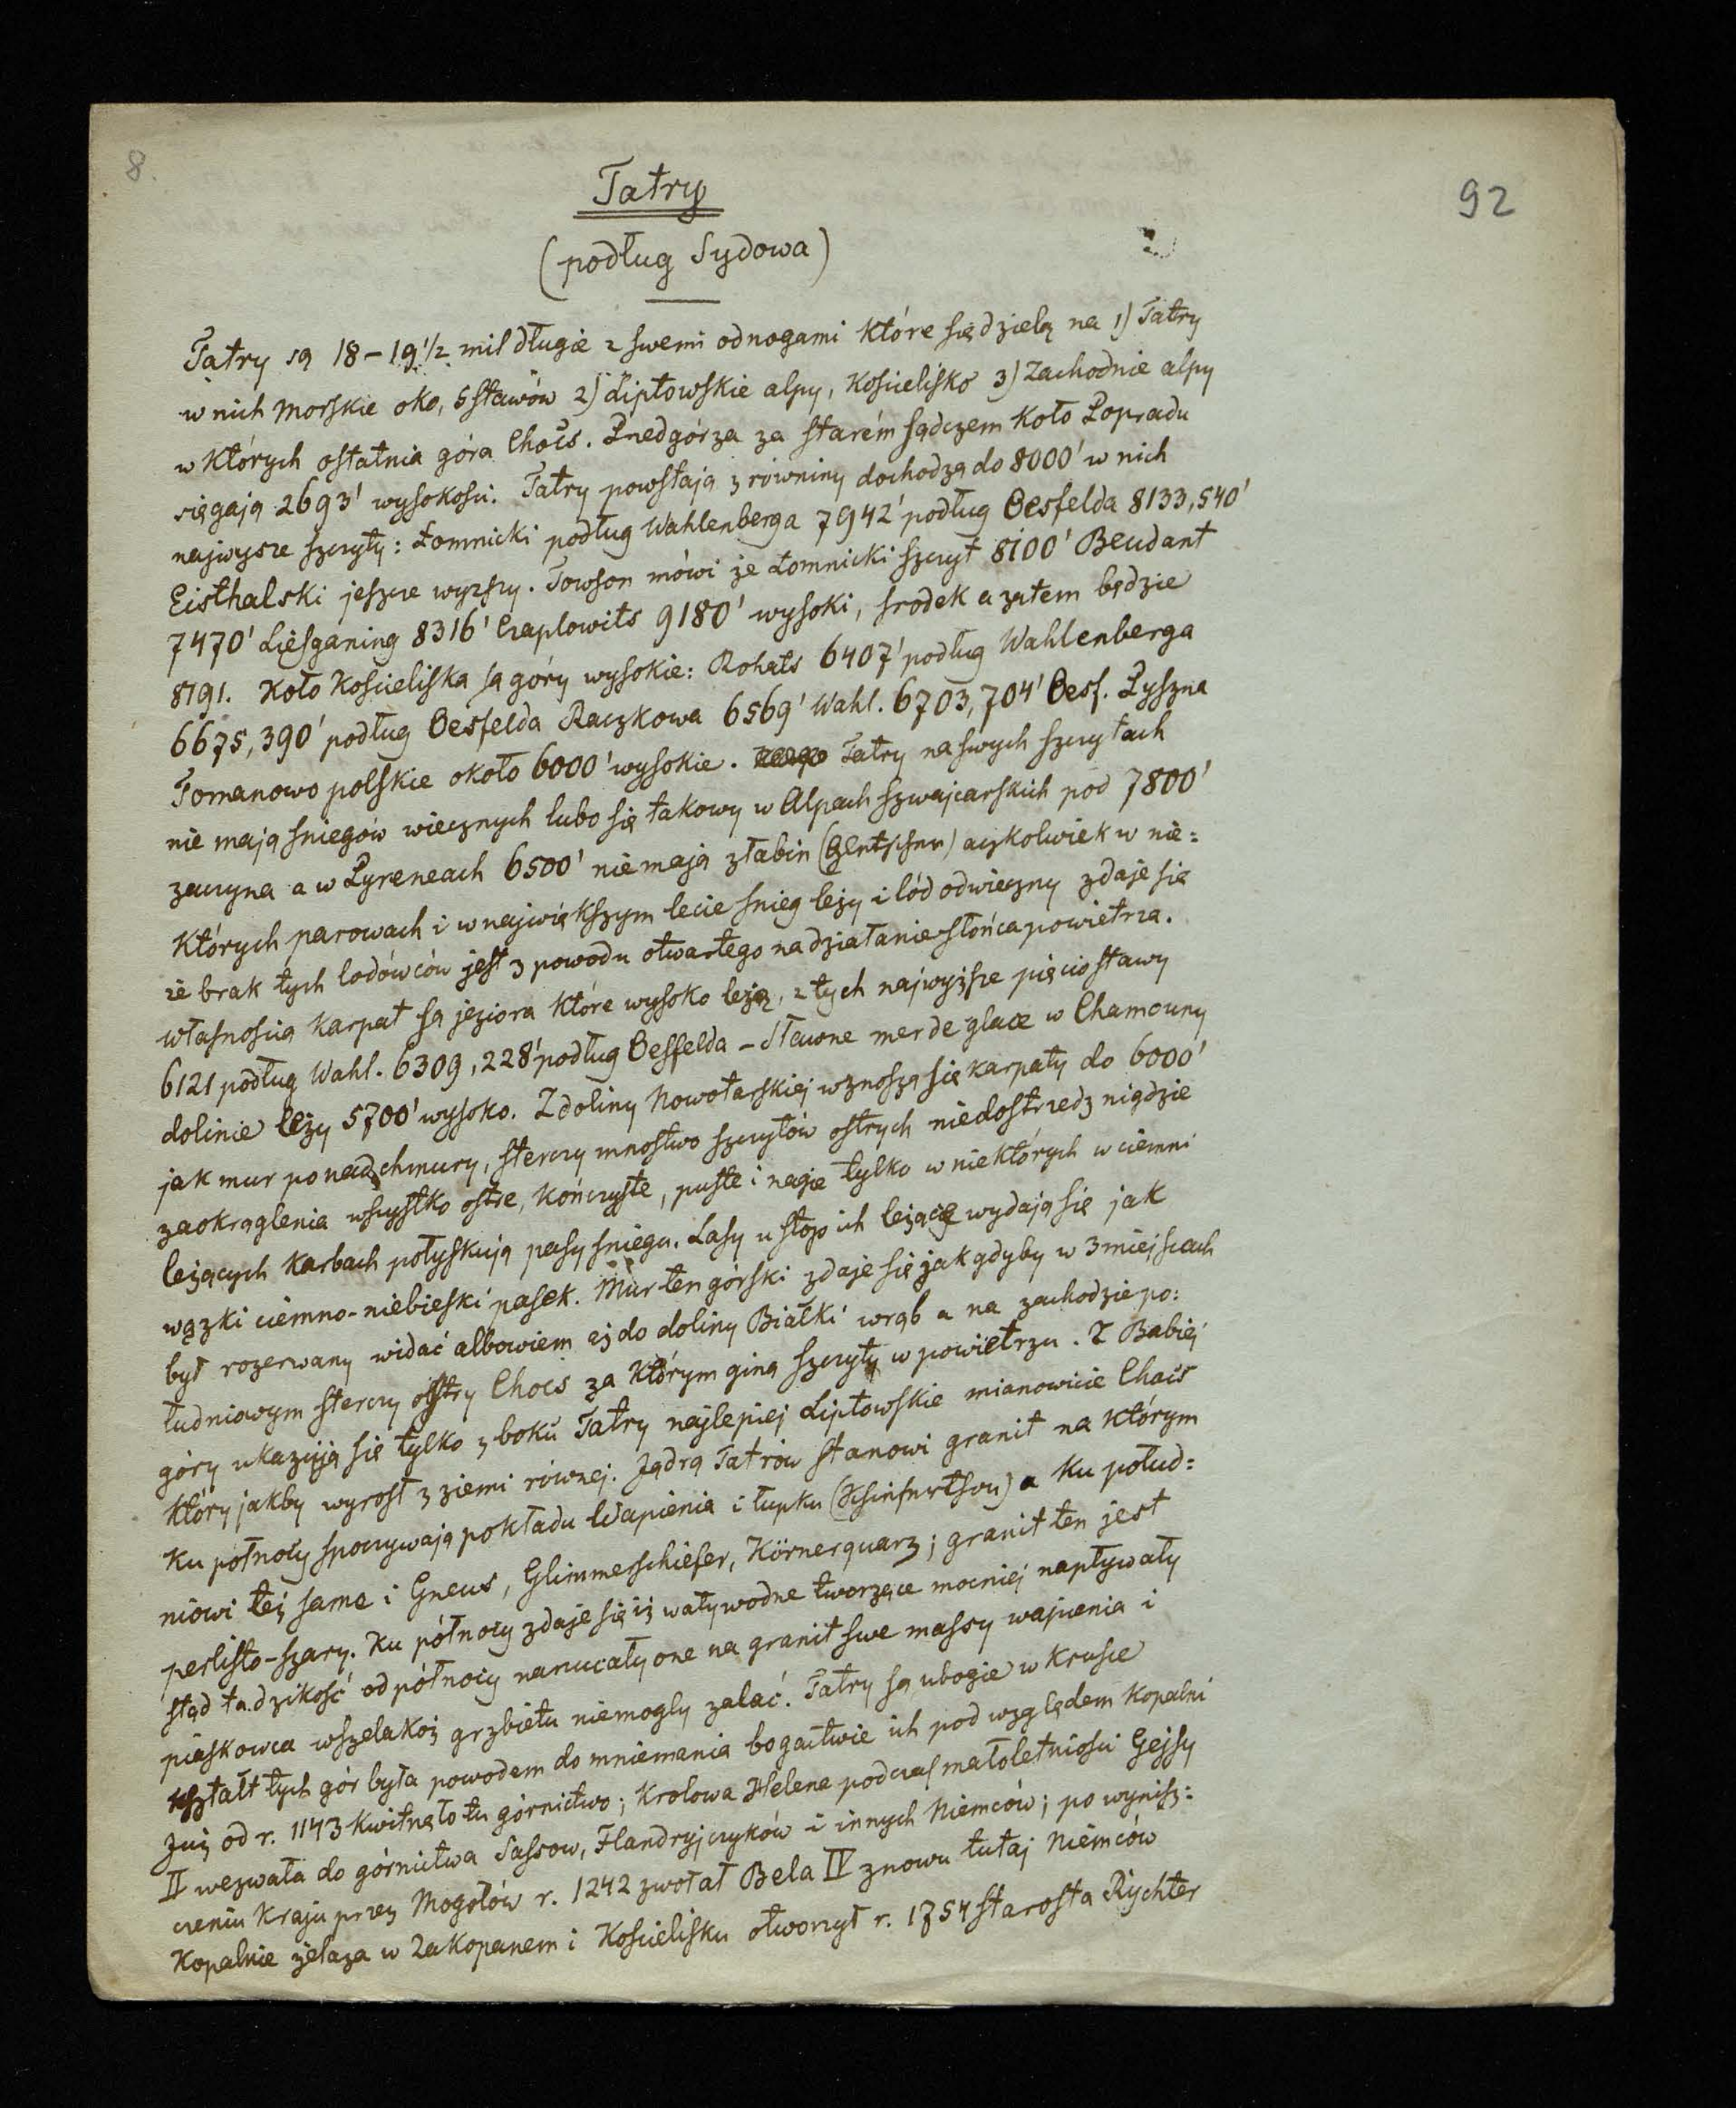 8.
92
Tatry
(podług Sydowa)
Tatry są 18-19 1/2 mil długie z swemi odnogami które się dzielą na 1) Tatry
w nich morskie oko, 5 stawów 2) Liptowskie alpy, Kościelisko 3) Zachodnie alpy
w których ostatnia góra Chočs. Predgórza za starém sączem Koło Popradu
sięgają 2693' wysokosci. Tatry powstają z równiny dochodzą do 8000' w nich
najwysze szczyty: Łomnicki podług Wahlenberga 7942' podług Oesfelda 8133,540'
Eisthalski jeszcze wyzszy. Towson mówi że Łomnicki szczyt 8100' Beudant
7470' Liesganing 8316' Czaplowits 9180' wysoki, srodek a zatem będzie
8191. Koło Kościeliska są góry wysokie: Rohats 6407' podług Wahlenberga
6675,390' podług Oesfelda Raczkowa 6569' Wahl. 6703,704' Oesf. Pyszna
Tomanowo polskie około 6000' wysokie. Tatry na swych szczytach
nie mają sniegów wiecznych lubo się takowy w Alpach szwajcarskich pod 7800'
zaczyna a w Pyreneach 6500' nie mają złabin (Gletscher) aczkolwiek w nie=
których parowach i w największym lecie snieg leży i lód odwieczny zdaje się
że brak tych lodówców jest z powodu otwartego na działanie słońca powietrza.
własnoscią Karpat są jeziora które wysoko leżą, z tych najwyższe pięciostawy
6121 podług Wahl. 6309,228' podług Oesfelda - Sławne mer de glace w Chamouny
dolinie leży 5700' wysoko. Z doliny Nowotarskiej wznoszą się karpaty do 6000'
jak mur ponad chmury, sterczy mnostwo szczytów ostrych niedostrzedz nigdzie
zaokrąglenia wszystko ostre, kończyste, puste i nagie tylko w niektórych w ciemni
leżących karbach połyskują pasy sniegu. Lasy u stop ich leżące wydają się jak
wązki ciemno-niebieski pasek. Mur ten górski zdaje się jak gdyby w 3 miejscach
był rozerwany widać albowiem aż do doliny Białki wrąb a na zachodzie po=
łudniowym sterczy ostry Chocs za którym giną szczyty w powietrzu. Z Babiej
góry ukazują się tylko z boku Tatry najlepiej Liptowskie mianowicie Chocs
który jakby wyrosł z ziemi równej. Jądrą Tatrów stanowi granit na którym
Ku połnocy spoczywają pokładu Wapienia i łupku (Schiefer) a Ku połud=
niowi też same i Gneus, Glimmerschiefer, Körnerquarz; granit ten jest
perlisto-szary. Ku północy zdaje się iż wały wodne tworzące mocniej napływały
stąd ta dzikość od północy narzucały one na granit swe massy wapienia i
piaskowca wszelakoż grzbietu niemogly zalać. Tatry są ubogie w krusce
kształt tych gór była powodem do mniemania bogactwie ich pod względem Kopalni
Już od r. 1143 kwitnęło tu górnictwo; Krolowa Helena podczas małoletniosci Gejsy
II wezwała do górnictwa Sassow, Flandryjczyków i innych Niemców; po wynisz=
czeniu Kraju przez Mogołów r. 1242 zwołał Bela IV znowu tutaj Niemców
Kopalnie żelaza w Zakopanem i Kościelisku otworzył r. 1754 starosta Rychter